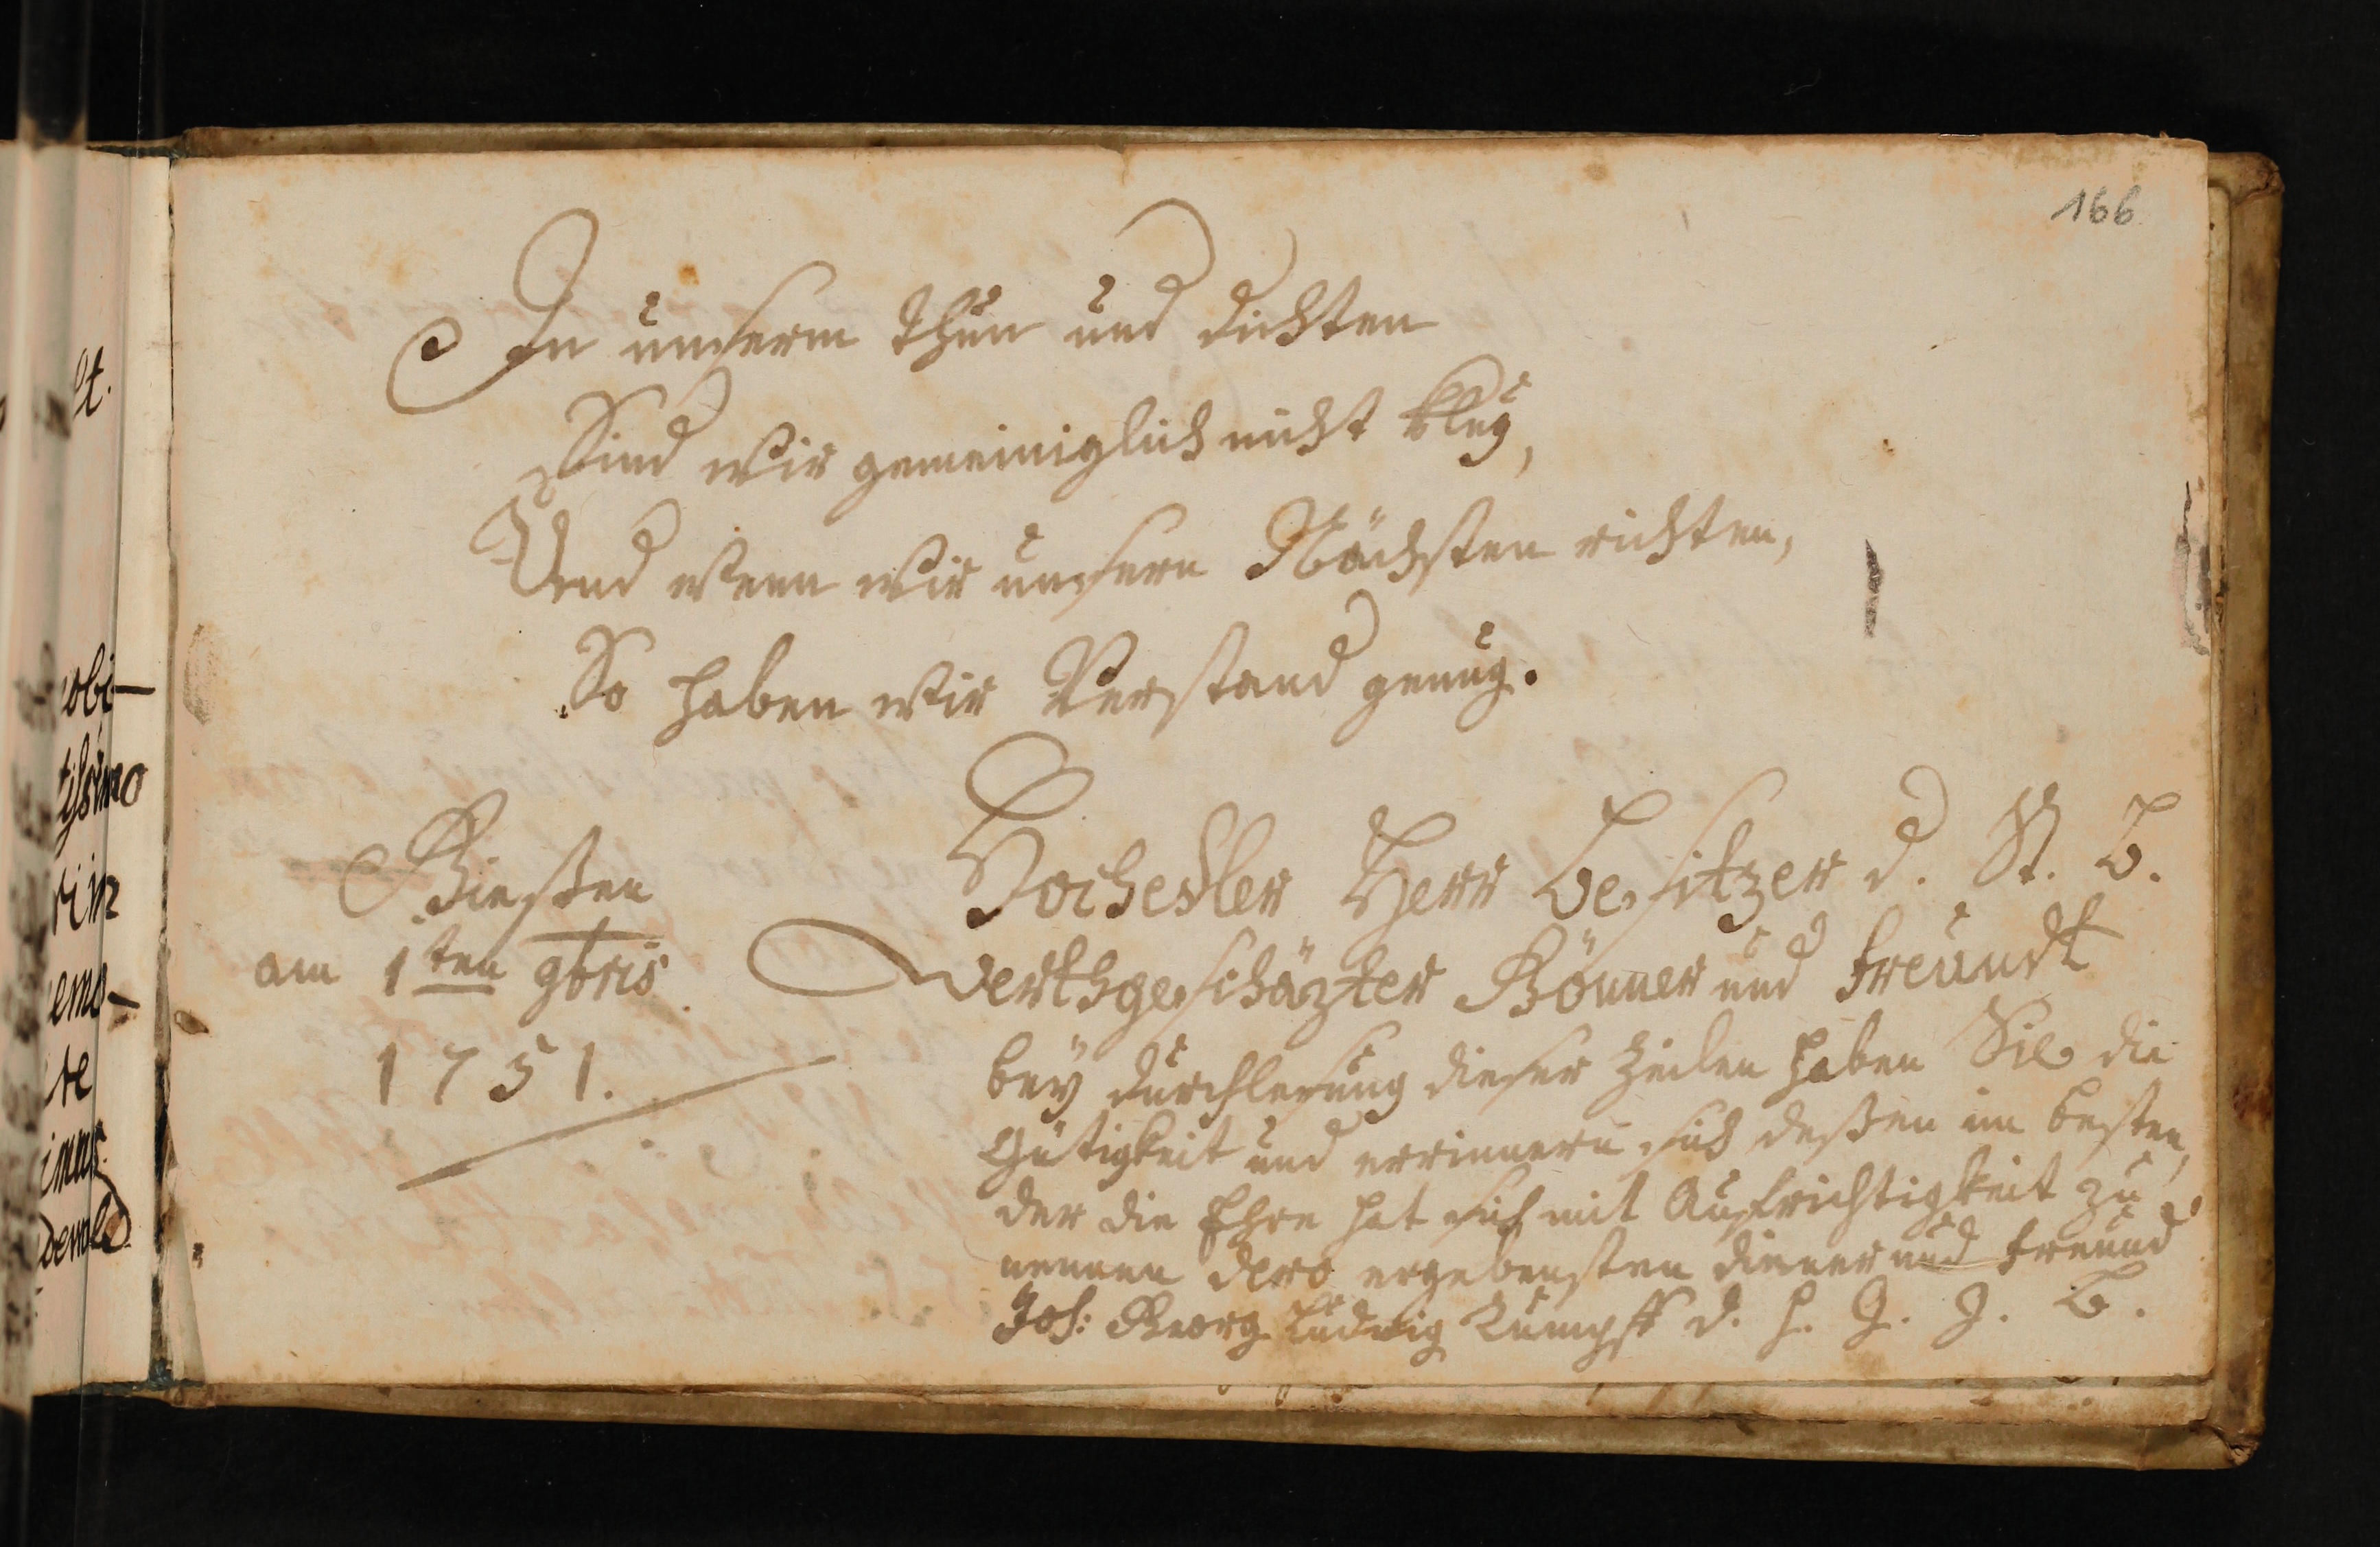 166
In unserm thun und dichten
Sind wir gemeiniglich nicht klug,
Und wenn wir unsern Nächsten richten,
So haben wir Verstand genug.
Giessen
am 1ten 9bris
1751.
Hochedler Herr Besitzer d. St. B.
Werthgeschäzter Gönner und freundt
bey durchlesung dieser Zeilen haben Sie die
Gütigkeit und errinnern sich dessen im besten,
der die Ehre hat sich mit Aufrichtigkeit zu
nennen dero ergebensten diener und freund
Joh: Georg Ludwig Rumpff d. h. G. G. B.